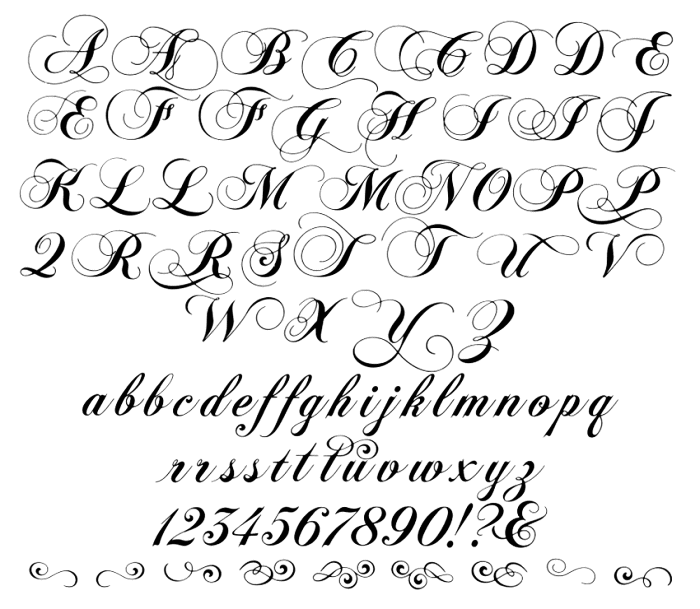 A A B C C D D E
E F F G H I I J
K L L M M N O P P
Q R R S T T U V
W X Y Z
a b b c d e f f g h i j k l m n o p q
r r s s t t t u v w x y z
1234567890!?&